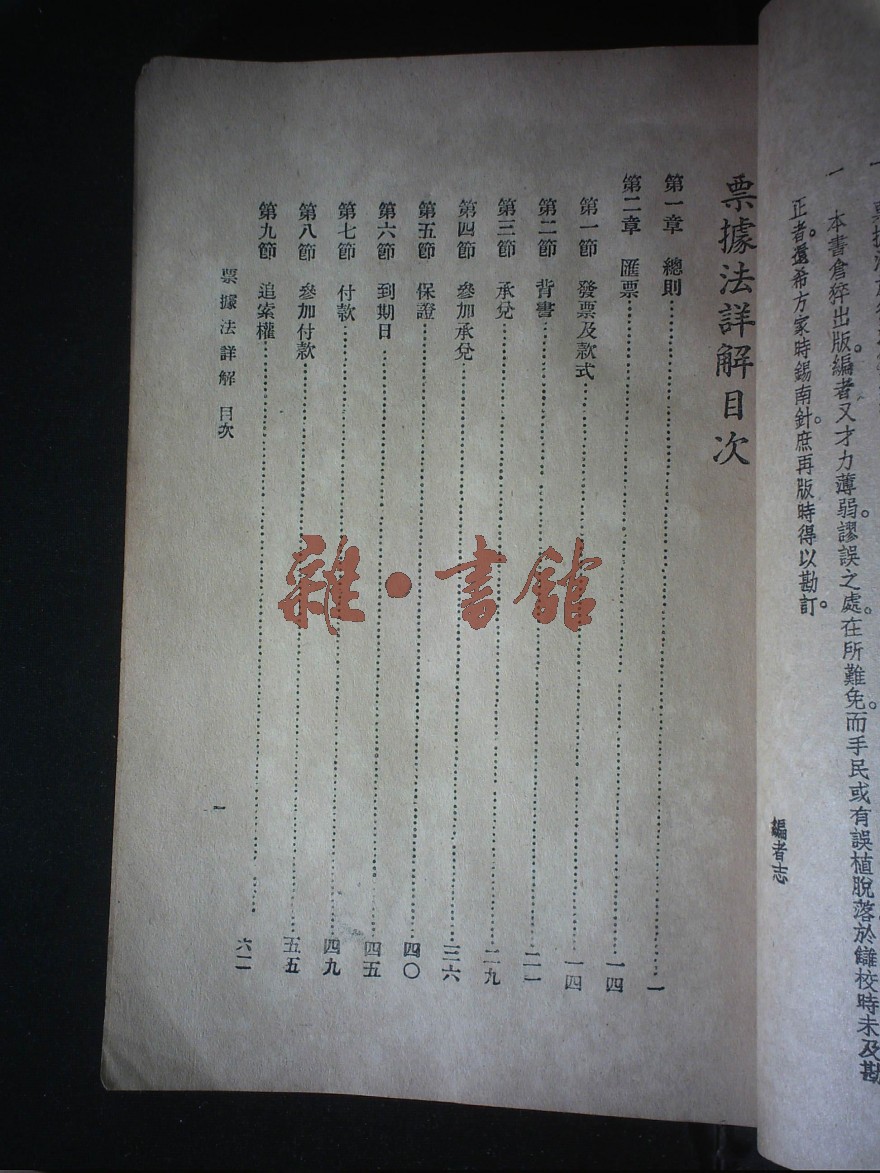 一　本書倉猝出版。編者又才力薄弱。謬誤之處。在所難免。而手民或有誤植脫落於讎校時未及勘
正者。還希方家時錫南針。庶再版時得以勘訂。
編者志
票據法詳解目次
第一章　總則……一
第二章　匯票……一四
第一節　發票及款式……一四
第二節　背書……二一
第三節　承兌……二九
第四節　參加承兌……三六
第五節　保證……四〇
第六節　到期日……四五
第七節　付款……四九
第八節　參加付款……五五
第九節　追索權……六二
票據法詳解　目次
一
雜·書館